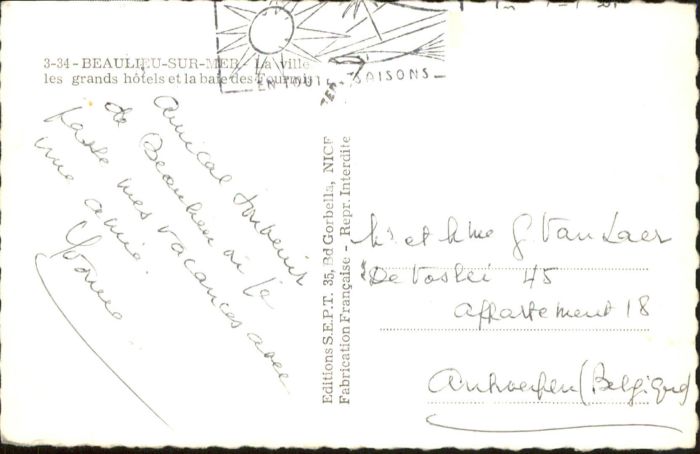 3-34 - BEAULIEU-SUR-MER - La ville
les grands hôtels et la baie des Fourmis
EN TOUTES SAISONS
Amical souvenir
de Beaulieu où je
passe mes vacances avec
une amie.
Yvonne
Editions S.E.P.T. 35, Bd Gorbella, NICE
Fabrication Française - Repr. Interdite
Mr et Mme G. Van Laer
De Voslei 45
Appartement 18
Antwerpen (Belgique)